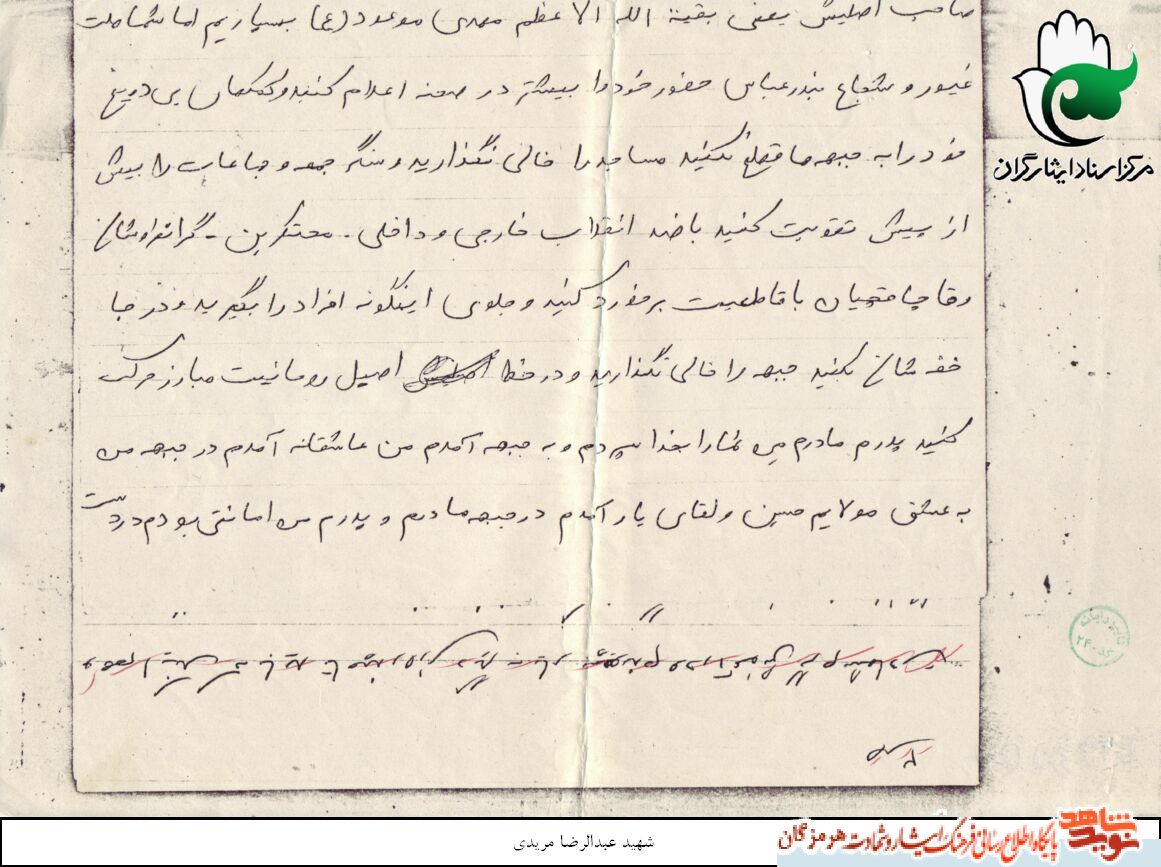 صاحب اصلیش یعنی بقیة الله الاعظم مهدی موعود (عج) بسپاریم اما شما ملت
غیور و شجاع بندرعباس حضور خود را بیشتر در صحنه اعلام کنید و کمکهای بی دریغ
خود را به جبهه ها قطع نکنید مساجد را خالی نگذارید و سنگر جمعه و جماعات را بیش
از پیش تقویت کنید با ضد انقلاب خارجی و داخلی - محتکرین - گرانفروشان
وقاچاقچیان با قاطعیت برخورد کنید و جلوی اینگونه افراد را بگیرید و در جا
خفه شان کنید جبهه را خالی نگذارید و در خط اصیل روحانیت مبارز حرکت
کنید پدرم مادرم من شما را بخدا سپردم و به جبهه آمدم من عاشقانه آمدم در جبهه من
به عشق مولایم حسین و لقای یار آمدم در جبهه مادرم و پدرم من امانتی بودم در دست
مرکز اسناد ایثارگران
تایید رایانه
کد ۲۴۰
شهید عبدالرضا مریدی
نوید شاهد
پایگاه اطلاع رسانی فرهنگ ایثار و شهادت هرمزگان